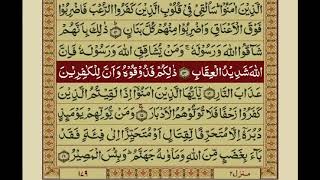 الَّذِيْنَ اٰمَنُوْا ؕ سَاُلْقِيْ فِيْ قُلُوْبِ الَّذِيْنَ كَفَرُوا الرُّعْبَ فَاضْرِبُوْا
فَوْقَ الْاَعْنَاقِ وَاضْرِبُوْا مِنْهُمْ كُلَّ بَنَانٍ ﴿۱۲﴾ ذٰلِكَ بِاَنَّهُمْ
شَآقُّوا اللّٰهَ وَرَسُوْلَهٗ ۚ وَمَنْ يُّشَاقِقِ اللّٰهَ وَرَسُوْلَهٗ فَاِنَّ
اللّٰهَ شَدِيْدُ الْعِقَابِ ﴿۱۳﴾ ذٰلِكُمْ فَذُوْقُوْهُ وَاَنَّ لِلْكٰفِرِيْنَ
عَذَابَ النَّارِ ﴿۱۴﴾ يٰۤاَيُّهَا الَّذِيْنَ اٰمَنُوْۤا اِذَا لَقِيْتُمُ الَّذِيْنَ
كَفَرُوْا زَحْفًا فَلَا تُوَلُّوْهُمُ الْاَدْبَارَ ﴿۱۵﴾ وَمَنْ يُّوَلِّهِمْ يَوْمَئِذٍ
دُبُرَهٗۤ اِلَّا مُتَحَرِّفًا لِّقِتَالٍ اَوْ مُتَحَيِّزًا اِلٰى فِئَةٍ فَقَدْ
بَآءَ بِغَضَبٍ مِّنَ اللّٰهِ وَمَاْوٰىهُ جَهَنَّمُ ؕ وَبِئْسَ الْمَصِيْرُ ﴿۱۶﴾
منزل ۲
۱۷۹